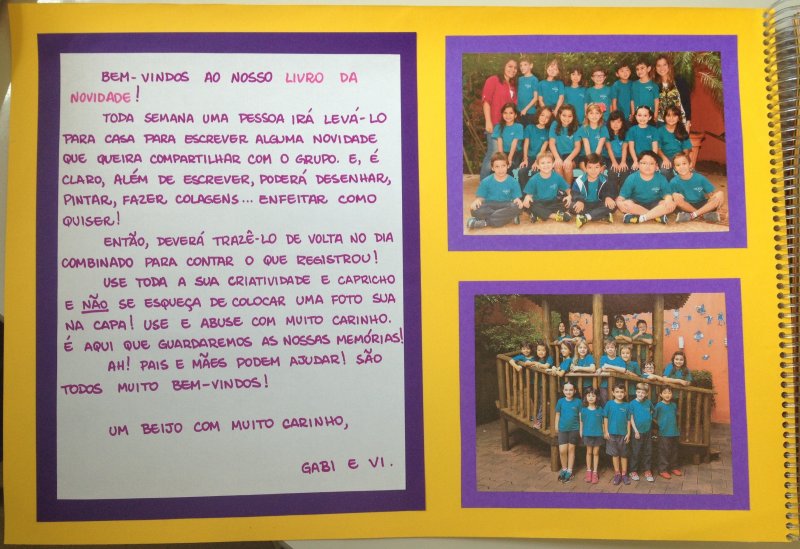 BEM-VINDOS AO NOSSO LIVRO DA
NOVIDADE!
TODA SEMANA UMA PESSOA IRÁ LEVÁ-LO
PARA CASA PARA ESCREVER ALGUMA NOVIDADE
QUE QUEIRA COMPARTILHAR COM O GRUPO. E, É
CLARO, ALÉM DE ESCREVER, PODERÁ DESENHAR,
PINTAR, FAZER COLAGENS... ENFEITAR COMO
QUISER!
ENTÃO, DEVERÁ TRAZÊ-LO DE VOLTA NO DIA
COMBINADO PARA CONTAR O QUE REGISTROU!
USE TODA A SUA CRIATIVIDADE E CAPRICHO
E NÃO SE ESQUEÇA DE COLOCAR UMA FOTO SUA
NA CAPA! USE E ABUSE COM MUITO CARINHO.
É AQUI QUE GUARDAREMOS AS NOSSAS MEMÓRIAS!
AH! PAIS E MÃES PODEM AJUDAR! SÃO
TODOS MUITO BEM-VINDOS!
UM BEIJO COM MUITO CARINHO,
GABI E VI.